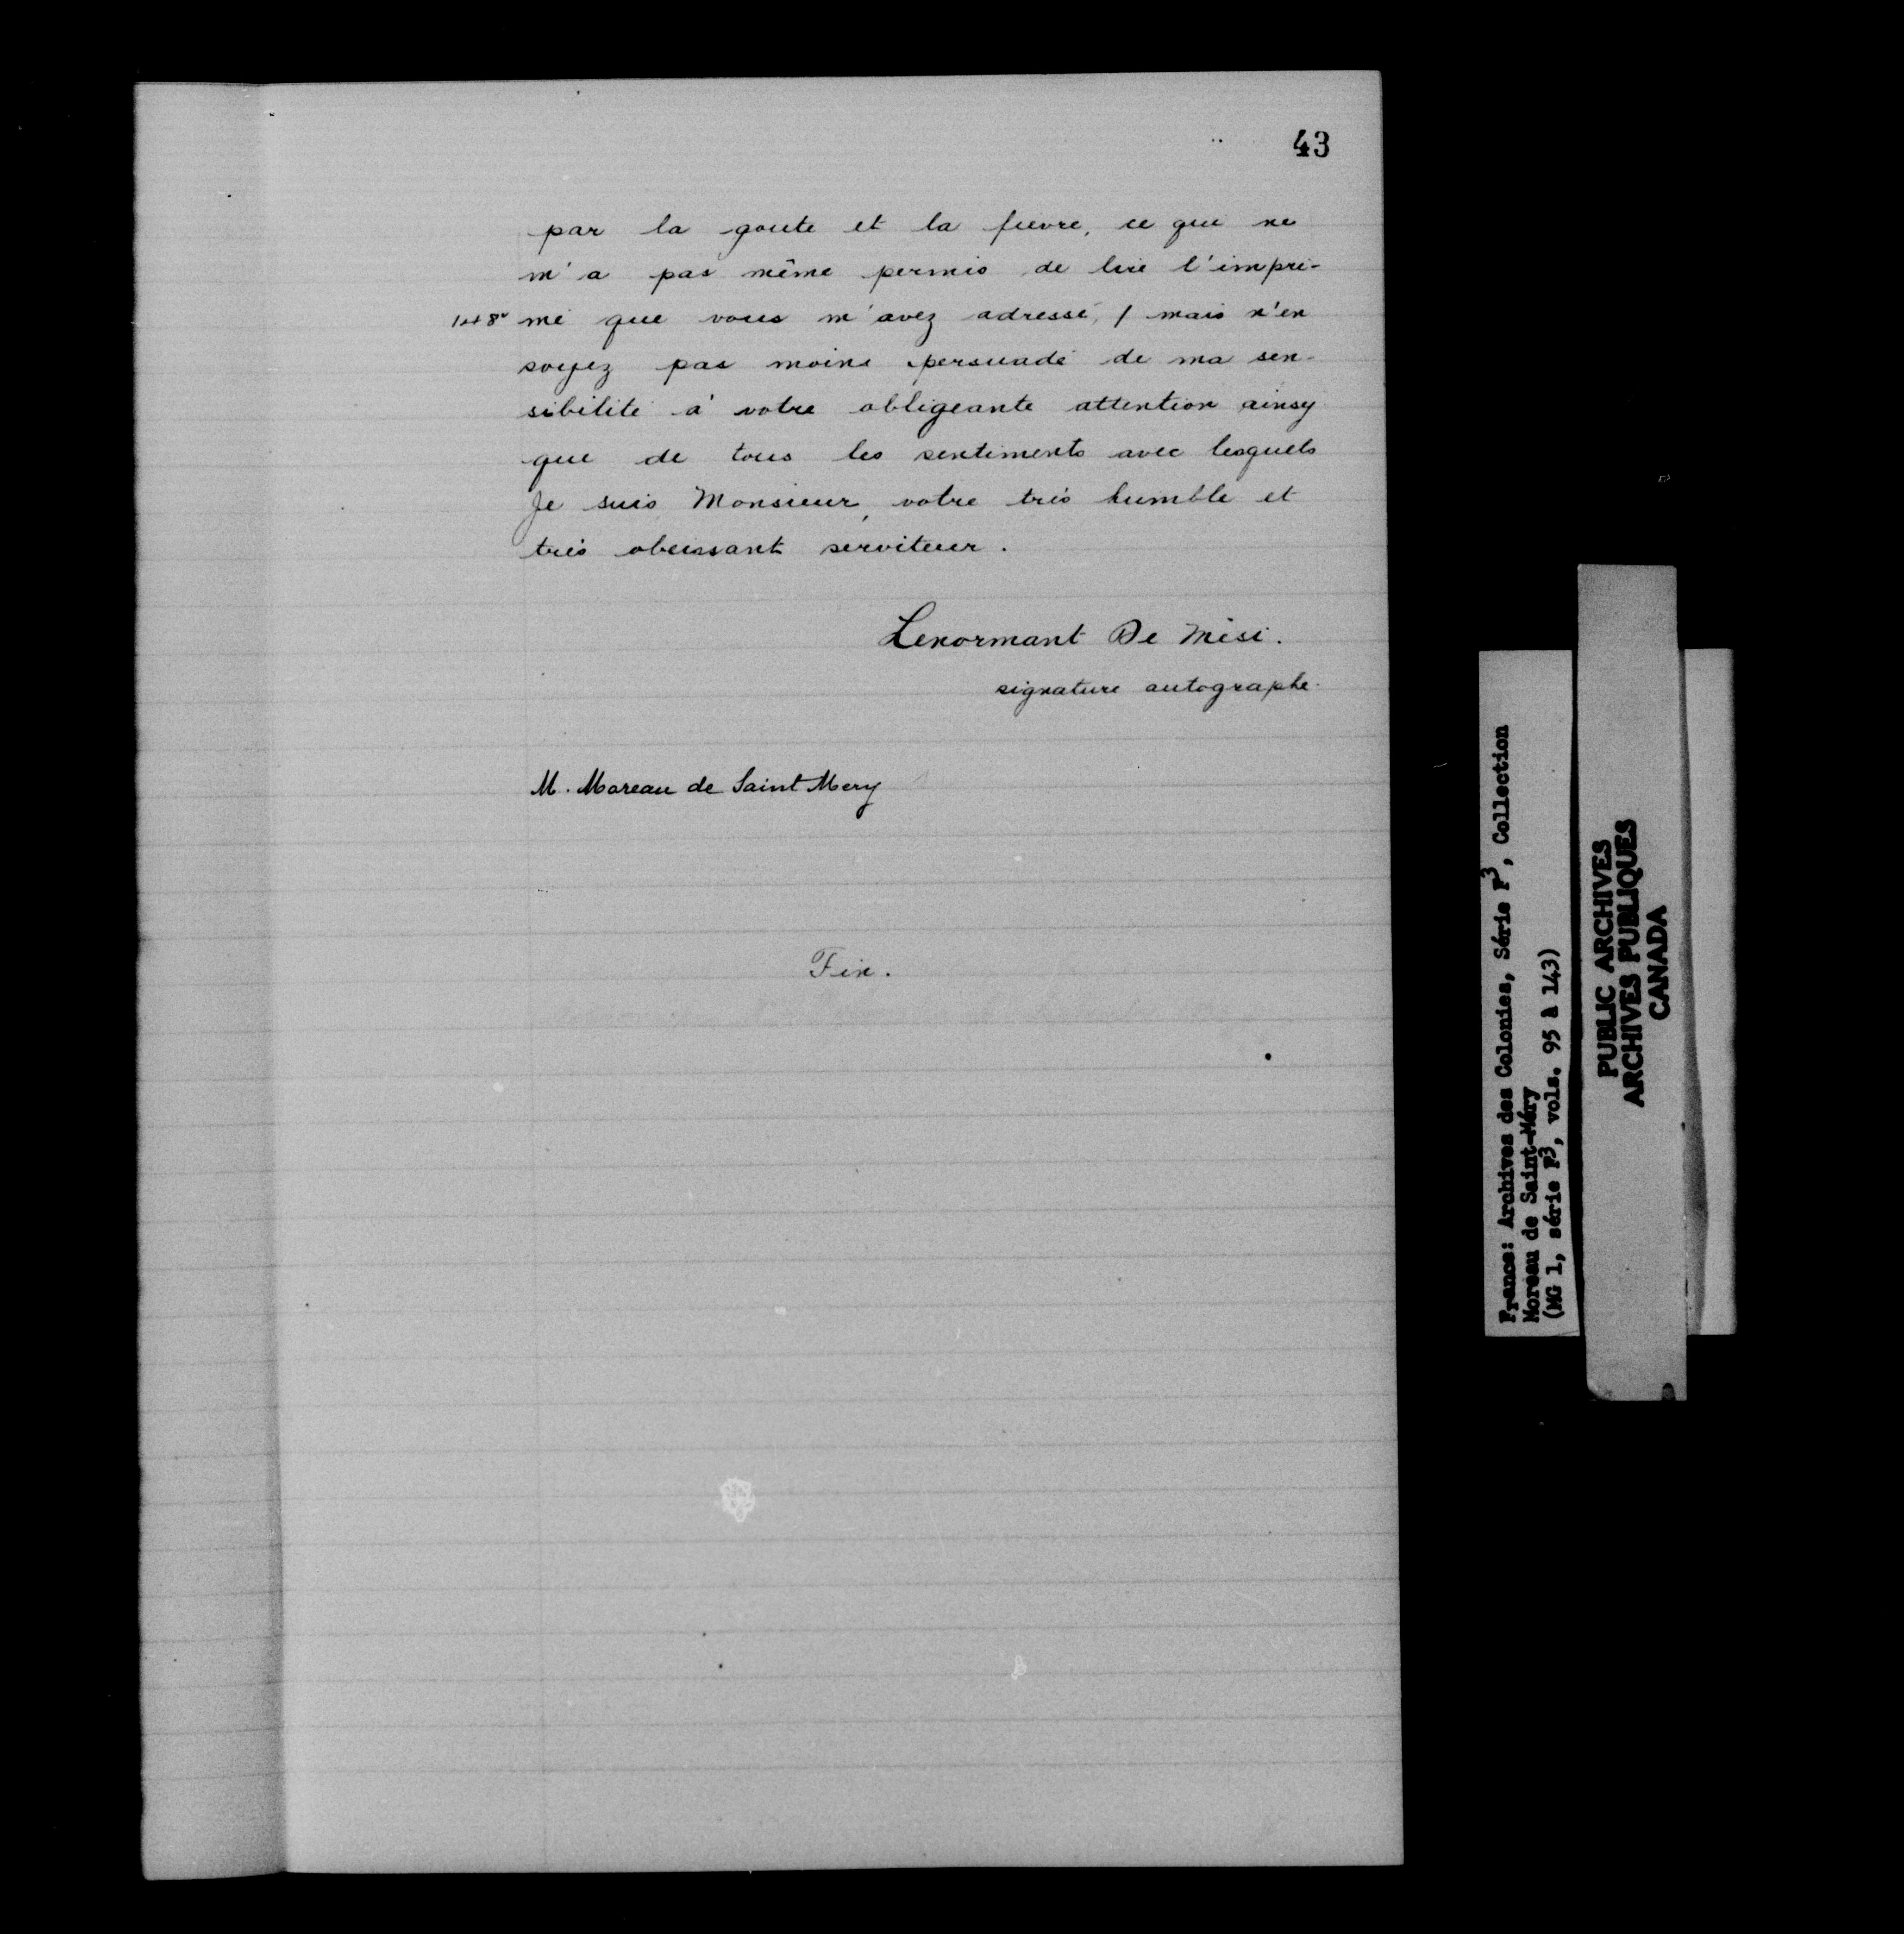 43
par la goute et la fievre, ce qui ne
m'a pas même permis de lire l'impri-
mé que vous m'avez adressé, / mais n'en
soyez pas moins persuadé de ma sen-
sibilité à votre obligeante attention ainsy
que de tous les sentiments avec lesquels
Je suis Monsieur, votre très humble et
très obeissant serviteur.
Lenormant De Mési.
signature autographe.
M. Moreau de Saint Mery
Fin.
France: Archives des Colonies, Série F3, Collection
Moreau de Saint-Méry
(MG 1, série F3, vols. 95 à 143)
PUBLIC ARCHIVES
ARCHIVES PUBLIQUES
CANADA